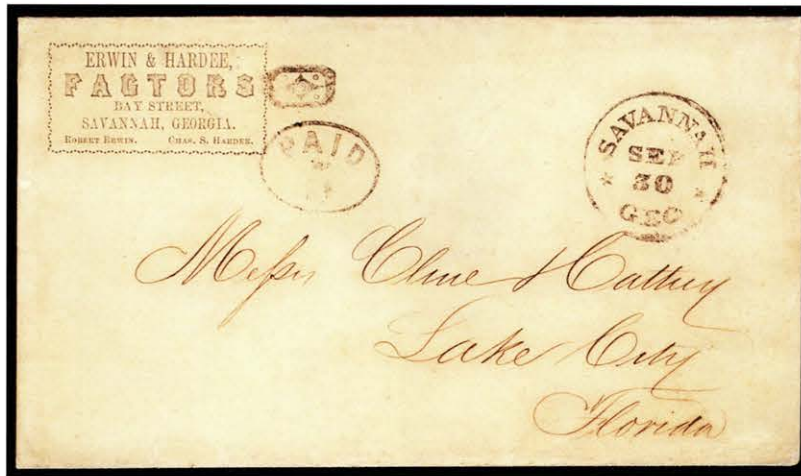 ERWIN & HARDEE,
FACTORS
BAY STREET,
SAVANNAH, GEORGIA.
ROBERT ERWIN. CHAS. S. HARDEE.
PAID
SAVANNAH
SEP
30
GEO
Messrs Cline &
Lake City
Florida